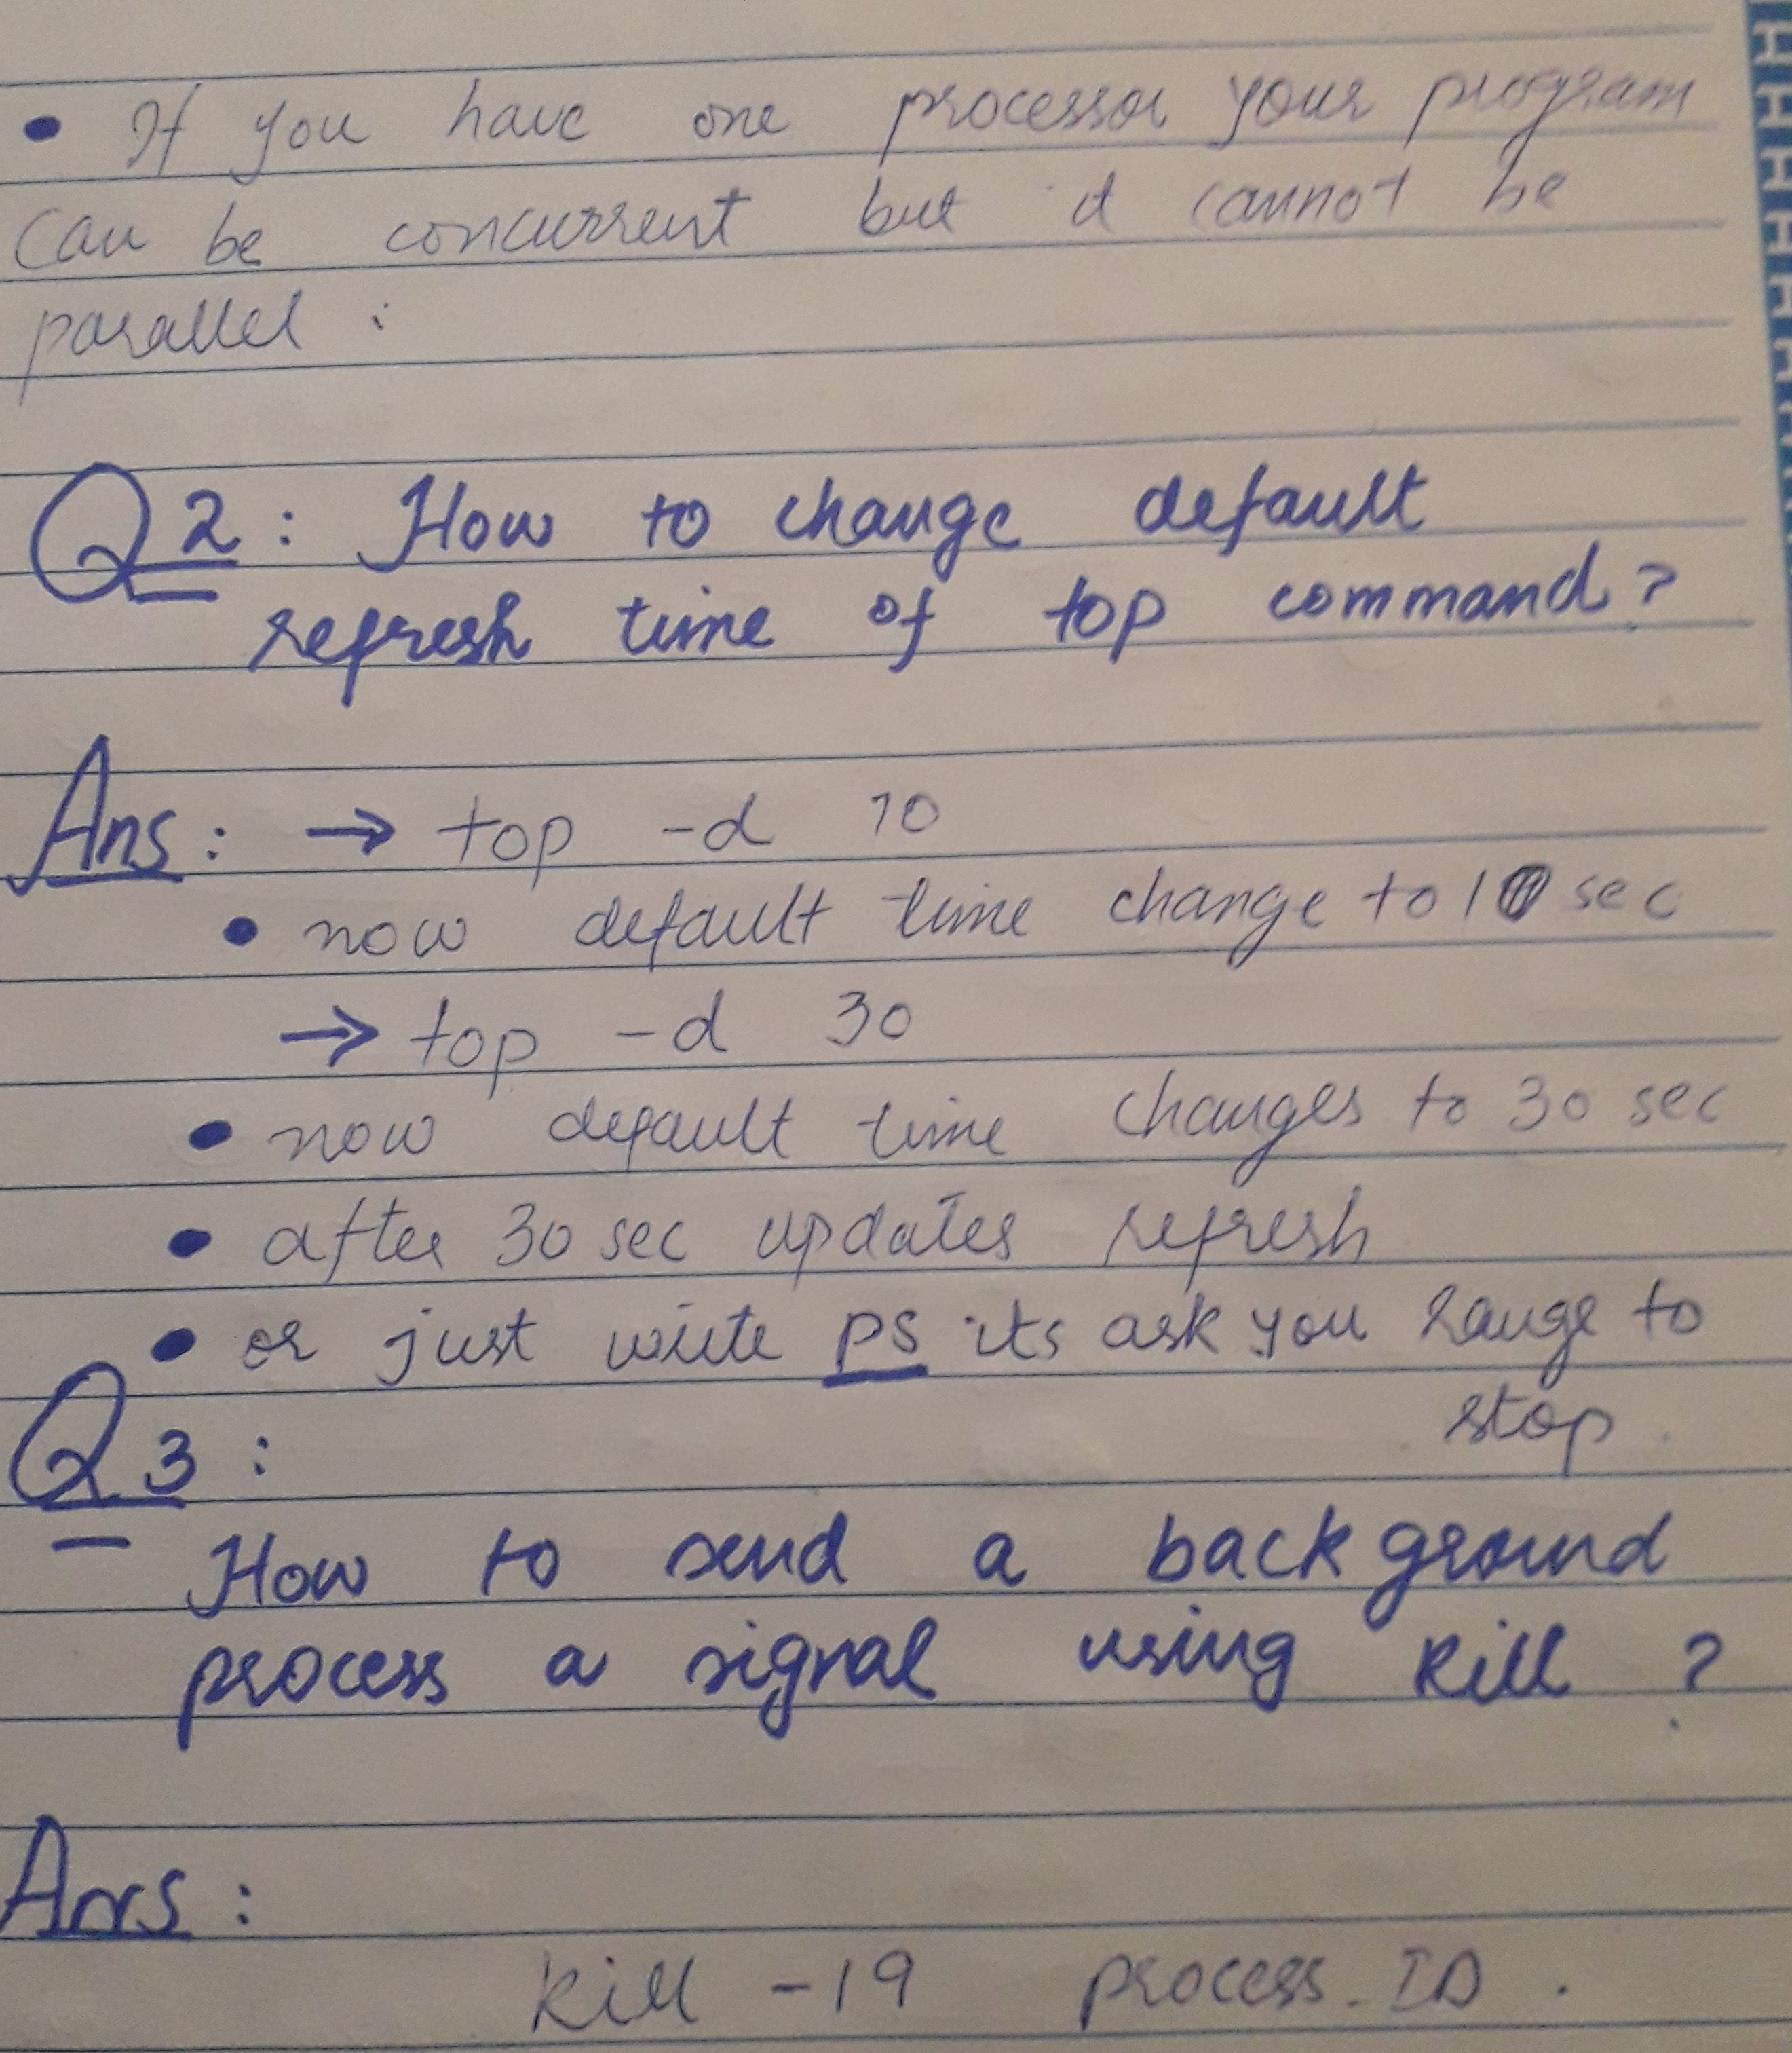 • If you have one processor your program
can be concurrent but it cannot be
parallel :
Q2 : How to change default
refresh time of top command ?
Ans : → top -d 10
• now default time change to 10 sec
→ top -d 30
• now default time changes to 30 sec
• after 30 sec updates refresh
• or just write ps its ask you range to
stop
Q3 :
How to send a background
process a signal using kill ?
Ans :
kill -19 process_ID .